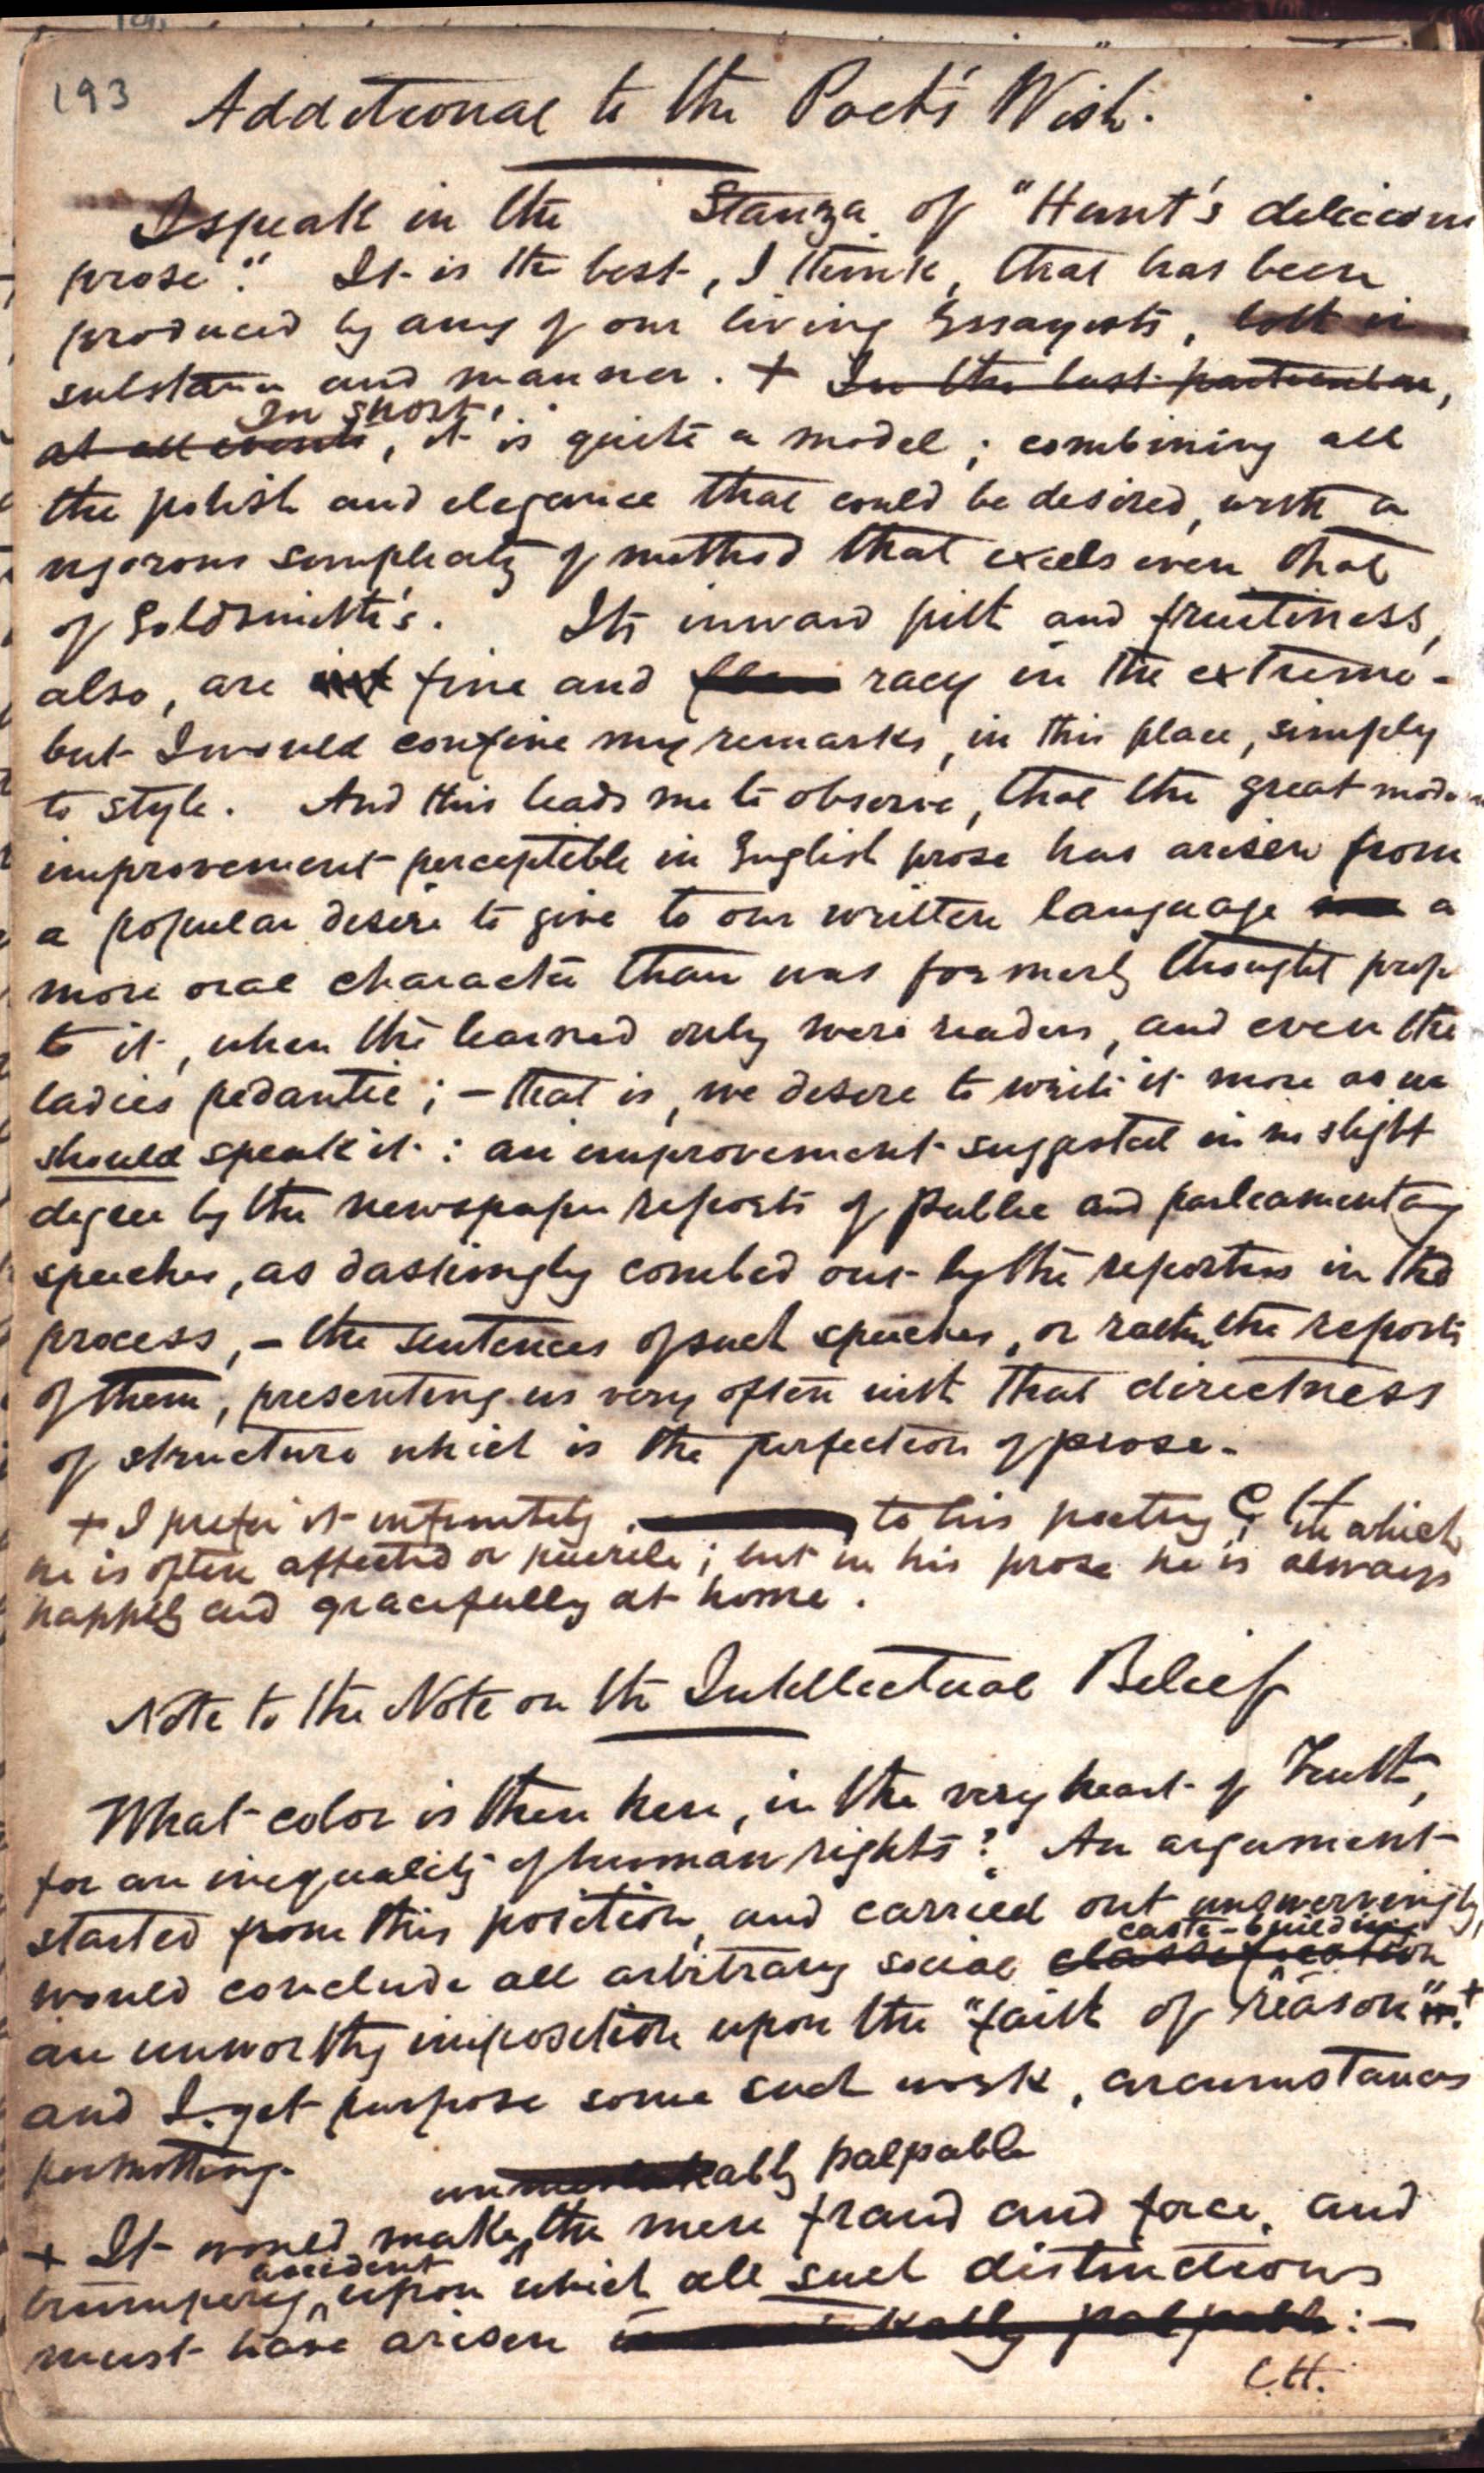 193
Additional to the Poet's Wish.
I speak in the Stanza of "Hunt's delicious
prose". It is the best, I think, that has been
produced by any of our living Essayists, both in
substance and manner. + In the last particular,
In short,
at all events, it is quite a model; combining all
the polish and elegance that could be desired, with a
vigorous simplicity of method that excels even that
of Goldsmith's. Its inward pith and fruitiness,
also, are fine and racy in the extreme -
but I would confine my remarks, in this place, simply
to style. And this leads me to observe, that the great modern
improvement perceptible in English prose has arisen from
a popular desire to give to our written language a
more oral character than was formerly thought prop
to it, when the learned only were readers, and even the
ladies pedantic; - that is, we desire to write it more as we
should speak it: an improvement suggested in no slight
degree by the newspaper reports of public and parliamentary
speeches, as dashingly combed out by the reporters in the
process, - the sentences of such speeches, or rather the reports
of them, presenting us very often with that directness
of structure which is the perfection of prose.
C H
+ I prefer it infinitely to his poetry; in which
he is often affected or puerile; but in his prose he is always
happily and gracefully at home.
Note to the Note on the Intellectual Belief
What color is there here, in the very heart of Truth,
for an inequality of human rights? An argument
started from this position, and carried out unswervingly,
caste-building
would conclude all arbitrary social classification
an unworthy imposition upon the "faith of reason": +
and I yet purpose some such work, circumstances
permitting.
unmistakably palpable
+ It would make the mere fraud and force, and
accident
trumpery upon which all such distinctions
must have arisen unmistakably palpable: -
C.H.